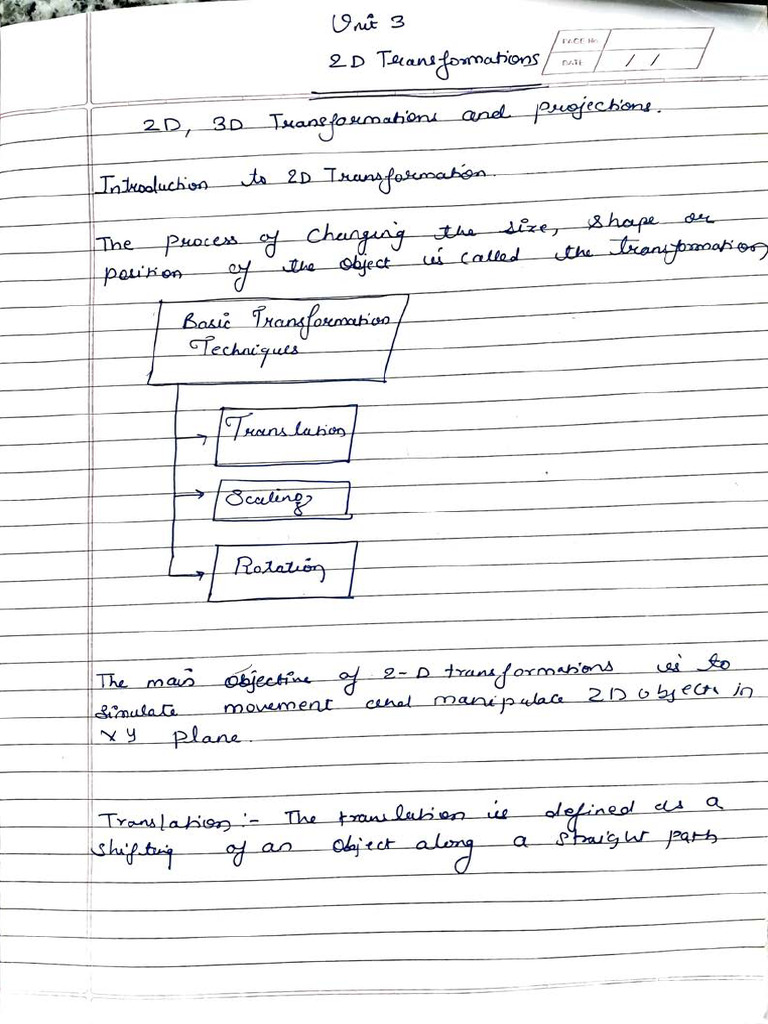 Unit 3
2D Transformations
PAGE No.
DATE / /
2D, 3D Transformations and projections.
Introduction to 2D Transformation.
The process of changing the size, shape or
position of the object is called the transformation
Basic Transformation
Techniques
Translation
Scaling
Rotation
The main objective of 2-D transformations is to
simulate movement and manipulate 2D objects in
XY plane.
Translation :- The translation is defined as a
shifting of an object along a straight path